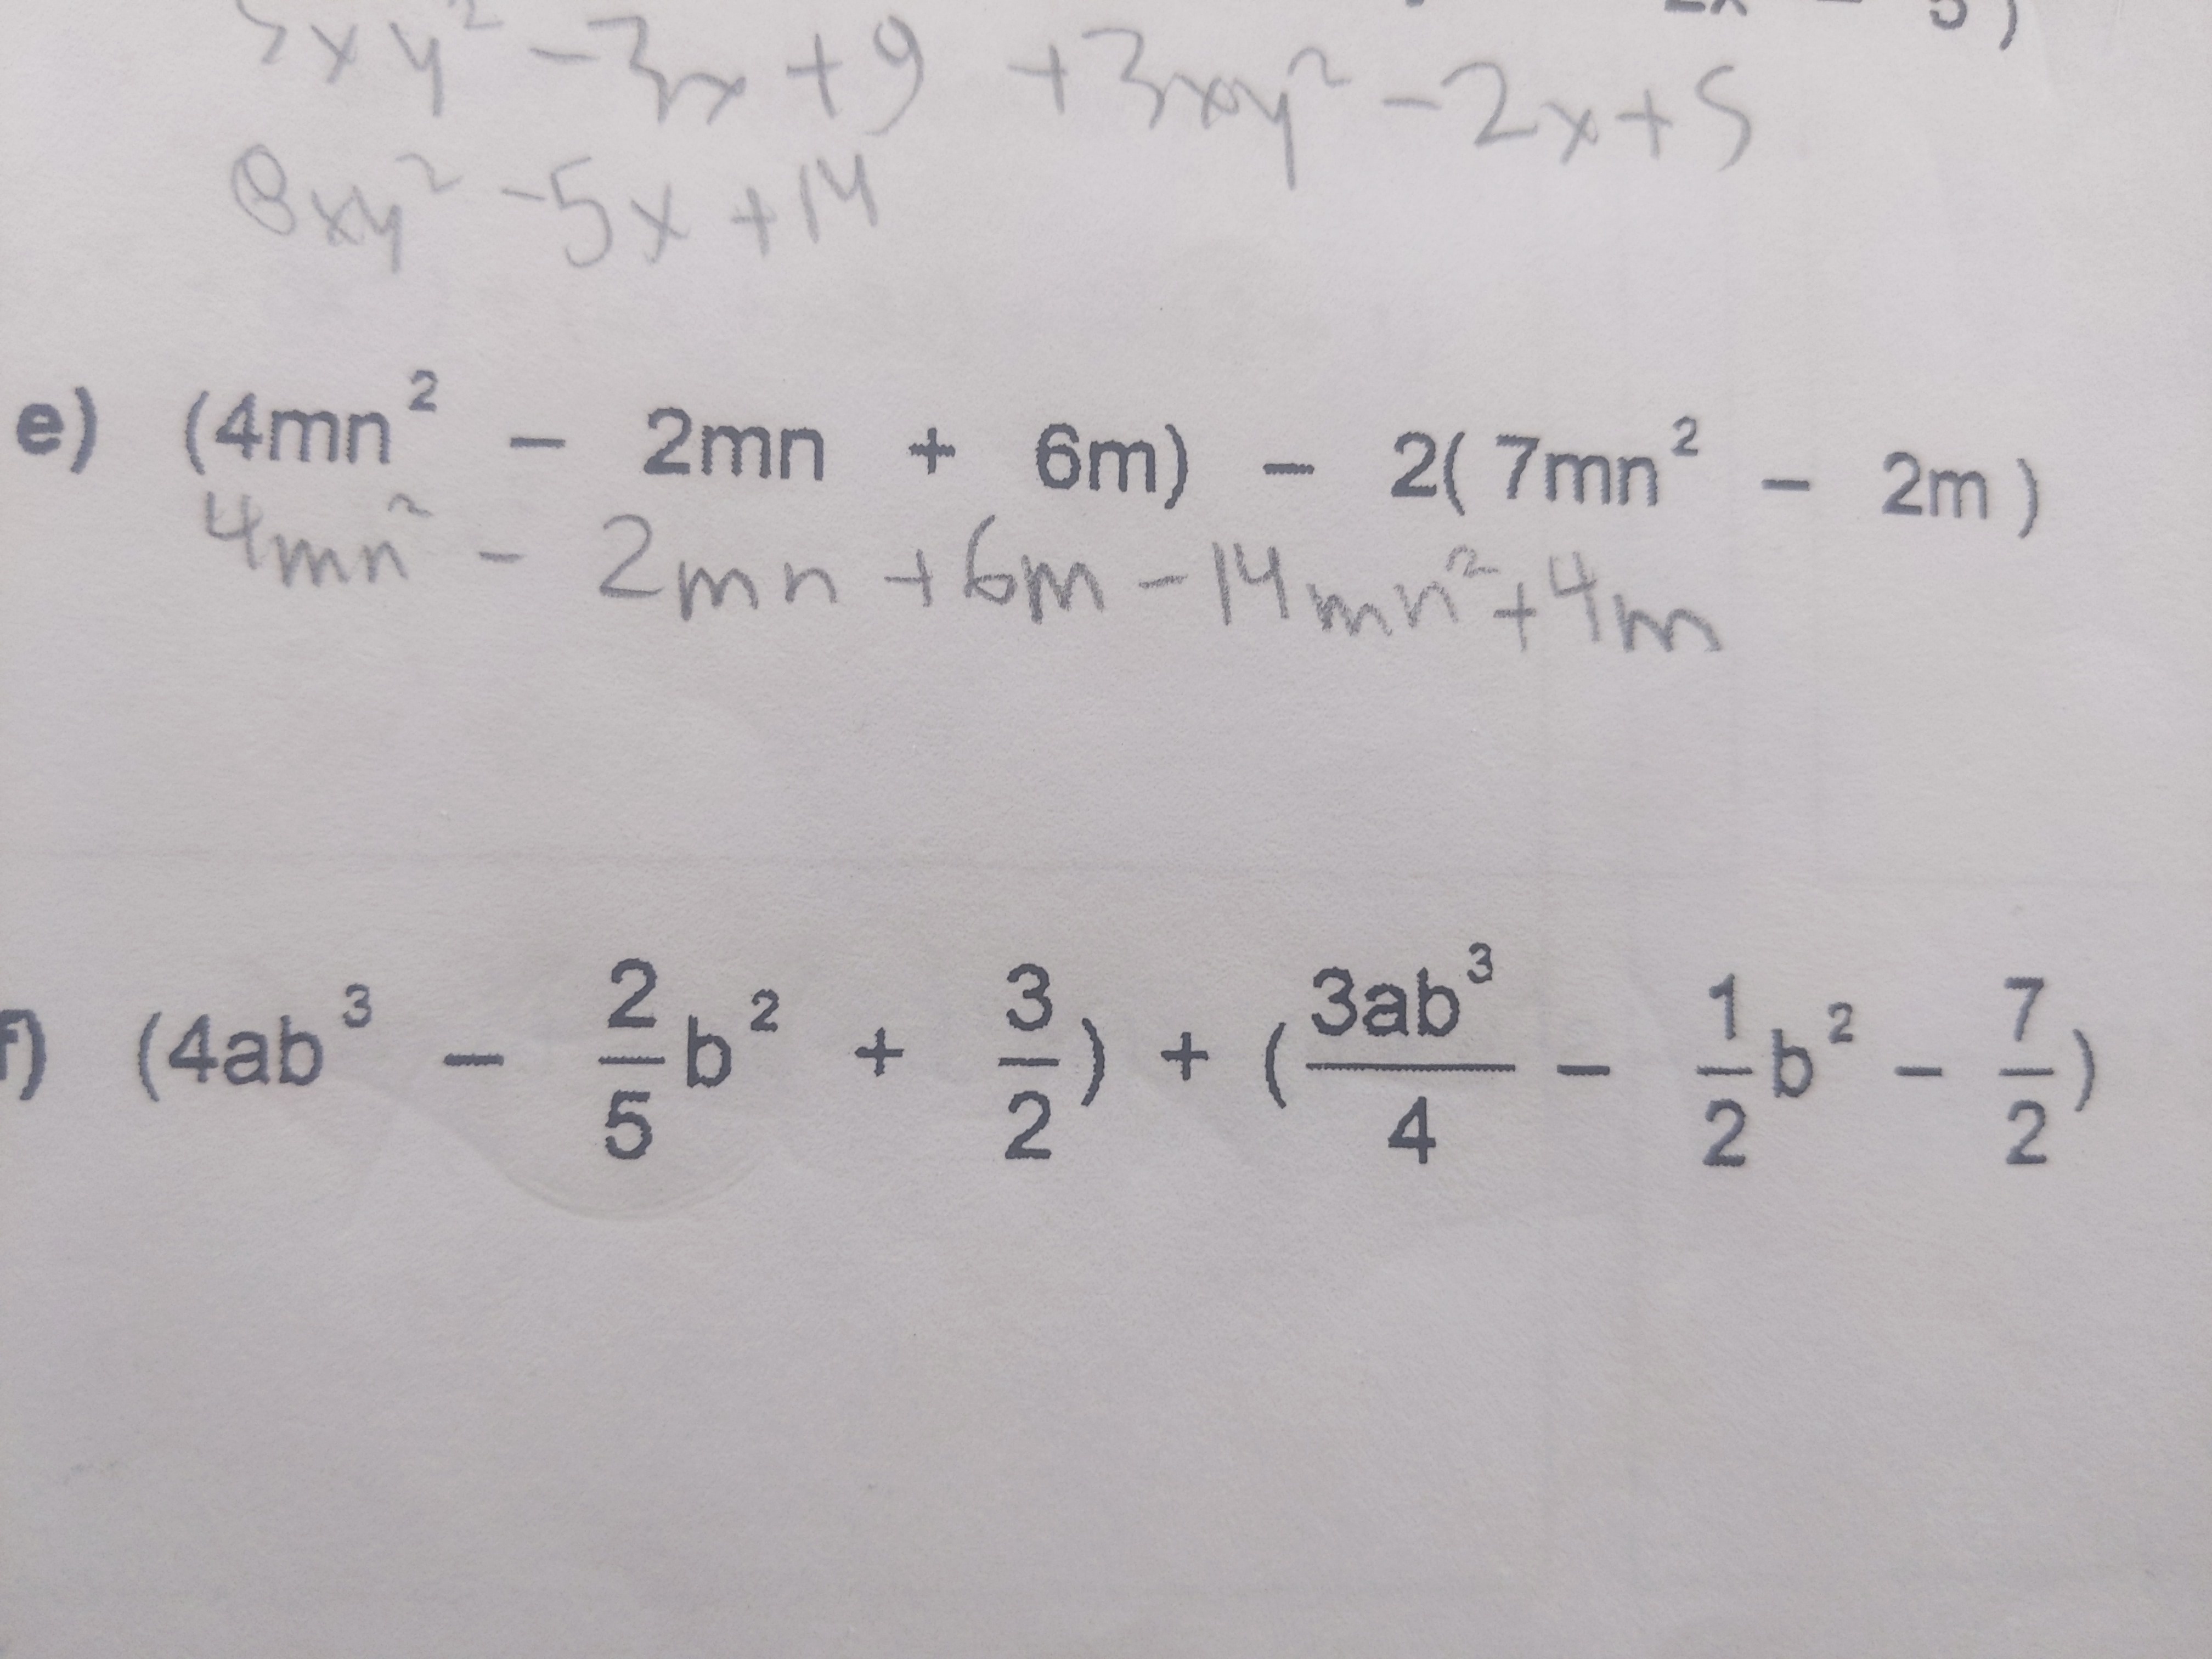 5xy² - 3x + 9 + 3xy² - 2x + 5
8xy² - 5x + 14
e) (4mn² - 2mn + 6m) - 2( 7mn² - 2m )
4mn² - 2mn + 6m - 14mn² + 4m
f) (4ab³ - 2/5 b² + 3/2) + (3ab³/4 - 1/2 b² - 7/2)